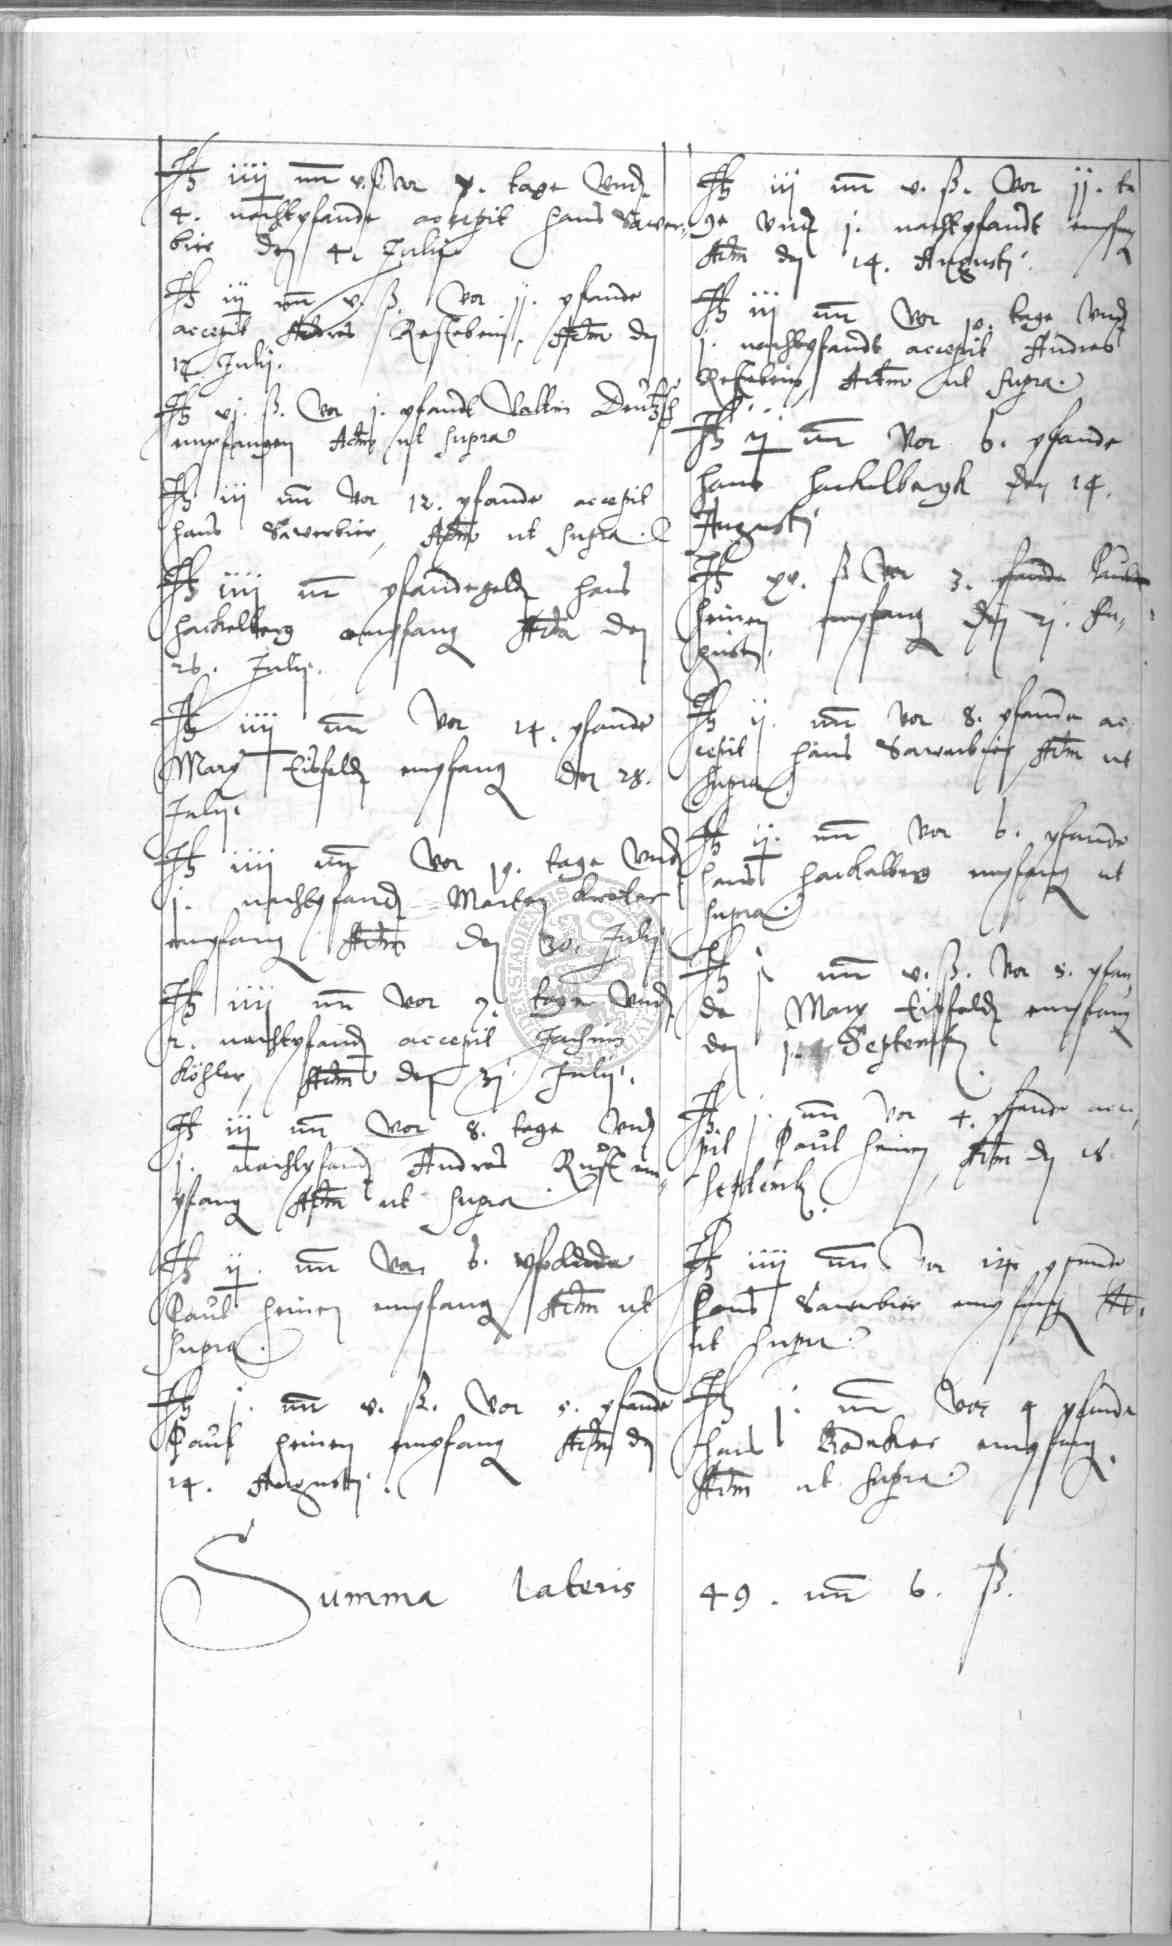 It iiij mr v. ß vor x. tage vnd
4. nachtpfande accepit hans Sawer-
bier den 4. Julij
It iij mr v. ß. vor jj. pfande
accepit Andres Actum den
12. Julij.
It vj. ß. vor j. pfandt Valtin Deutzsch
empfangen Actum ut supra
It iij mr vor 12. pfande accepit
hans Sawerbier, Actum ut supra.
It iiij mr pfandegeld hans
hackelberg empfang Actum den
26. Julij.
It iiij mr vor 14. pfande
Marx Eisfeld empfang den 28.
Julij.
It iiij mr vor 10. tage vnd
j. nachtpfand Marten
empfang Actum den 30. Julij
It iiij mr vor 7. tage vnd
2. nachtpfand accepit Jachim
Köhler, Actum den 31 Julij.
It iij mr vor 8. tage vnd
j. nachtpfand Andres Rust em-
pfang Actum ut supra
It ij. mr vor 6. pfande
Paul heinen empfang Actum ut
supra.
It j. mr v. ß. vor 5. pfande
Paul heinen empfang Actum den
14. Augusti.
It iij mr v. ß. vor jj. ta
ge vnd j. nachtpfandt empfang
Actum den 14. Augusti.
It iij mr vor 10. tage vnd
j. nachtpfandt accepit Andres
Actum ut supra.
It ij mr vor 6. pfande
hans hackelbergk den 14.
Augusti
It xv. ß vor 3. pfande Paul
heinen empfang den Au-
gusti.
It ij. mr vor 8. pfande ac
cepit hans Sawerbier Actum ut
supra
It ij. mr vor 6. pfande
hans hackelberg empfang ut
supra.
It j mr v. ß. vor 5. pfan
de Marx Eisfeld empfang
den j. Septemb
It j. mr vor 4. pfande acce
pit Paul heinen, Actum den 18.
Septemb.
It iiij mr vor 14 pfande
hans Sawerbier empfang Act.
ut supra.
It j. mr vor 4 pfande
hans Bedeker empfang.
Actum ut supra.
Summa lateris 49. mr 6. ß.